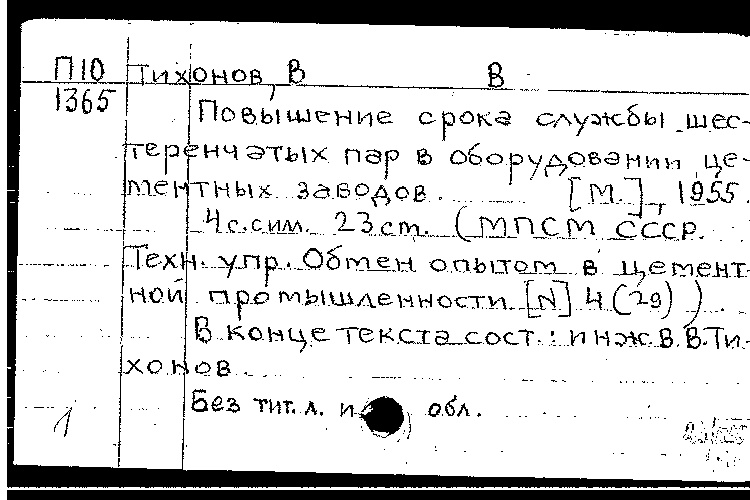 П10 Тихонов, В В
1365 Повышение срока службы шес-
теренчатых пар в оборудовании це-
ментных заводов. [М.], 1955.
4с.сим. 23 ст. (МПСМ СССР.
Техн. упр. Обмен опытом в цемент-
ной промышленности [N] 4 (29) )
В конце текста сост.: инж. В.В. Ти-
хонов
Без тит. л. и обл.
1